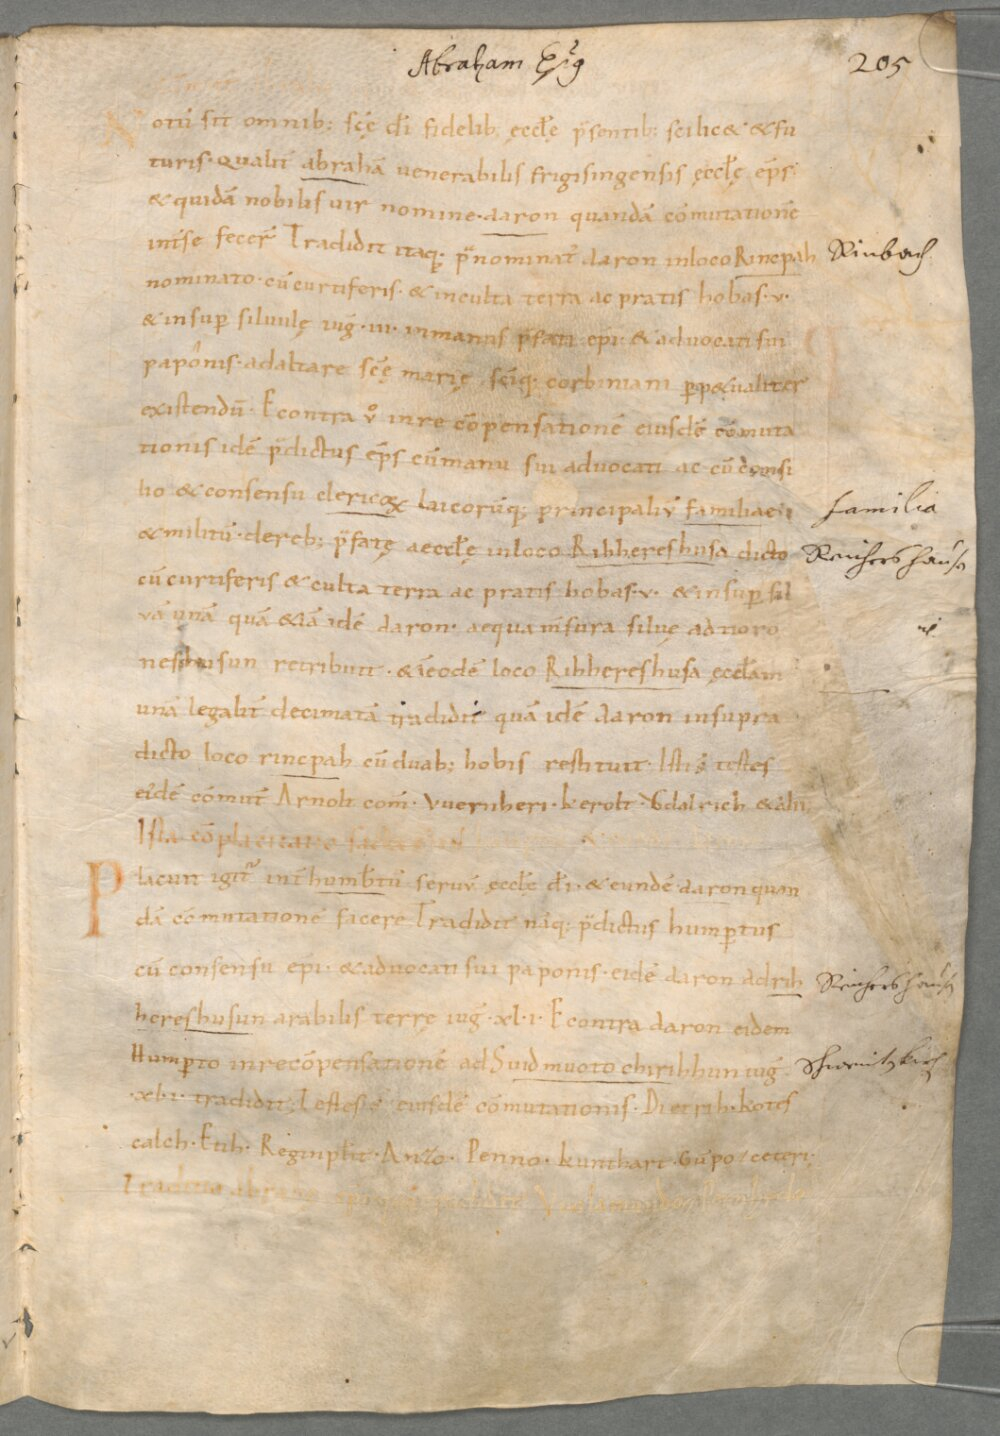 Abraham
205
Notū sit omnib; scę dī fidelib; ęccłę p̄sentib; scilic& &fu
turis. qualit̄ abrahā uenerabilis frigisingensis ęccłę ep̄s
& quidā nobilis uir nomine. aaron quandā cōmutationē
int̄ se fecer̄ Tradidit itaq; p̄nominat᷒ aaron inloco Rinepah
Rinbach
nominato. cū curtiferis. & inculta terra ac pratis hobas. v.
& insup̄ siluulę iuḡ. iii. inmanus p̄fati ep̄i. & aduocati sui
paponis. adaltare scę marię sc̄iq; corbiniani p̄p&ualiter
existendū. Econtra v̊ inre cōpensationē eiusdē cōmuta
tionis idē p̄dictus ep̄s cūmanu sui aduocati ac cū consi
lio & consensu clericoꝝ laicorūq; principaliū familiae
familia
& militū. dereb; p̄fatę aeccłę inloco Ribhereshusa dicto
Reichershausn
cū curtiferis & culta terra ac pratis hobas. v. & insup̄ sil
vā unā quā &iā idē aaron. aequa m̄sura siluę ad
retribuit. & īeodē loco Ribhereshusa ęccłam
unā legalit̄ decimatā tradidit quā idē aaron insupra
dicto loco rinepah cū duab; hobis restituit. Isti s̄ testes
eidē cōmut̄ Arnolt com̄. Vuernheri. kerolt. Vdalrich & alii.
Ista cōplacitatio facta
Placuit igit᷒ int̄ humb̄tū seruū ęccłę dī. & eundē aaron quan
dā cōmutationē facere Tradidit nāq; p̄dictus hump̄tus
cū consensu ep̄i. & aduocati sui paponis. eidē aaron ad rih
Reichershausn
hereshusun arabilis terrę iuḡ. xl. i. Econtra aaron eidem
Hump̄to inrecōpensationē ad Suidmuoto chirihhun iuḡ
.xl. i. tradidit; Testes s̄ eiusdē cōmutationis. Dietrih. kotes
calch. Etih. Reginp̄ht. Anzo. Penno. kunthart. Gūpo / ceteri.
Traditio abrahā ep̄i